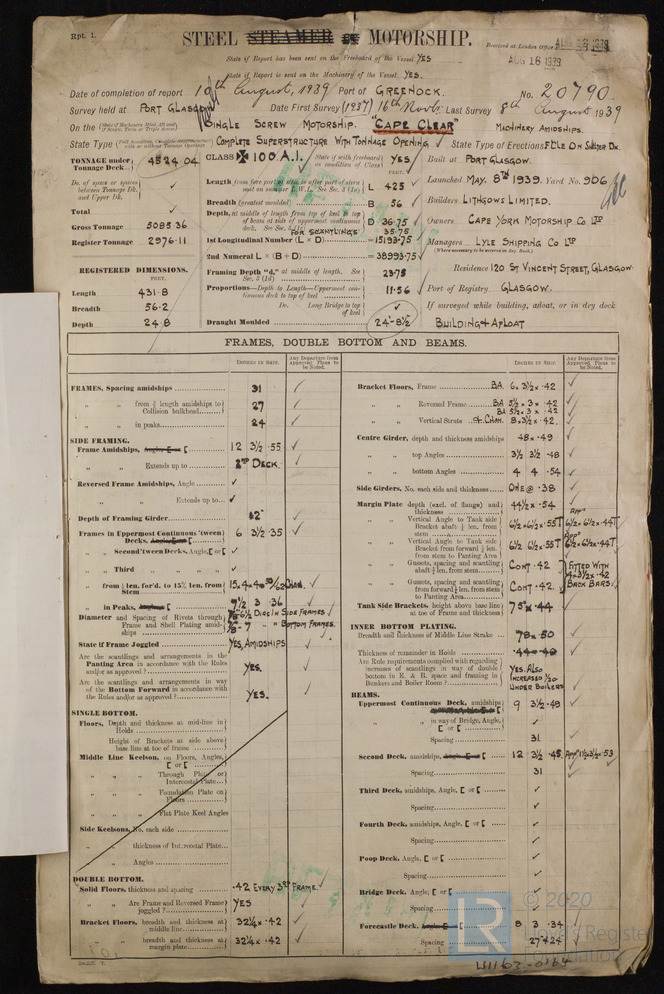 Rpt. 1.
STEEL STEAMER OR MOTORSHIP.
Received at London Office AUG 16 1939
AUG 16 1939
State if Report has been sent on the Freeboard of the Vessel YES
State if Report is sent on the Machinery of the Vessel. YES.
Date of completion of report 10th August, 1939 Port of GREENOCK. No. 20790.
Survey held at PORT GLASGOW Date First Survey (1937) 16th Novb. Last Survey 8th August 1939
On the (State if Machinery fitted Aft and if Single, Twin or Triple Screw) SINGLE SCREW MOTORSHIP. "CAPE CLEAR" MACHINERY AMIDSHIPS.
State Type COMPLETE SUPERSTRUCTURE WITH TONNAGE OPENING State Type of Erections F'CLE ON SHELTER DK.
TONNAGE under Tonnage Deck 4524.04 CLASS ✠ 100 A.I. State if with freeboard as condition of Class YES Built at PORT GLASGOW.
Do. of space or spaces between Tonnage Dk. and Upper Dk.
Length from fore part of stem to after part of stern post on summer L.W.L. See Sec. 3 (1a) L 425 Launched MAY. 8TH 1939. Yard No. 906
Total
Breadth (greatest moulded) B 56 Builders LITHGOWS LIMITED.
Gross Tonnage 5085.36
Depth, at middle of length from top of keel to top of beam at side of uppermost continuous deck. See Sec. 3 (1c) D 36.75 Owners CAPE YORK MOTORSHIP CO LTD
FOR SCANTLINGS 35.75
Register Tonnage 2976.11 1st Longitudinal Number (L × D) = 15193.75 Managers LYLE SHIPPING CO LTD
(Where necessary to be entered in Reg. Book)
2nd Numeral L × (B + D) = 38993.75
REGISTERED DIMENSIONS. FEET. Framing Depth "d," at middle of length. See Sec. 3 (1d) 23.75 Residence 120 ST VINCENT STREET, GLASGOW
Length 431.8 Proportions—Depth to Length—Uppermost continuous deck to top of keel 11.56 Port of Registry GLASGOW.
Breadth 56.2 Do. Long Bridge to top of keel If surveyed while building, afloat, or in dry dock
Depth 24.8 Draught Moulded 24'-8½ BUILDING & AFLOAT
FRAMES, DOUBLE BOTTOM AND BEAMS.
INCHES IN SHIP. Any Departure from Approved Plans to be Noted.
FRAMES, Spacing amidships 31
" " from ⅗ length amidships to Collision bulkhead 27
" " in peaks 24
SIDE FRAMING.
Frame Amidships, Angle [ or [ 12 3½ .55
" " Extends up to 2ND DECK.
Reversed Frame Amidships, Angle
" " Extends up to
Depth of Framing Girder 12"
Frames in Uppermost Continuous 'tween Decks, Angle [ or [ 6 3½ .35
" " Second 'tween Decks, Angle, [ or [
" " Third
" " from ⅕ len. for'd. to 15% len. from Stem 15.4×4×.50/.62 CHAN.
" " in Peaks, Angle or [ 7½ 3 .36
Diameter and Spacing of Rivets through Frame and Shell Plating amidships ⅞-6½ DIAS IN SIDE FRAMES
⅞-7 " " BOTTOM FRAMES.
State if Frame Joggled YES, AMIDSHIPS
Are the scantlings and arrangements in the Panting Area in accordance with the Rules and/or as approved? YES.
Are the scantlings and arrangements in way of the Bottom Forward in accordance with the Rules and/or as approved? YES.
SINGLE BOTTOM.
Floors, Depth and thickness at mid-line in Holds
Height of Brackets at side above base line at toe of frame
Middle Line Keelson, on Floors, Angles, [ or [
" " Through Plate or Intercostal Plate
" " Foundation Plate on Floors
" " Flat Plate Keel Angles
Side Keelsons, No. each side
" " thickness of Intercostal Plate
" " Angles
DOUBLE BOTTOM.
Solid Floors, thickness and spacing .42 EVERY 3RD FRAME
" " Are Frame and Reversed Frame joggled? YES
Bracket Floors, breadth and thickness at middle line 32¼ × .42
" " breadth and thickness at margin plate 32¼ × .42
INCHES IN SHIP. Any Departure from Approved Plans to be Noted.
Bracket Floors, Frame BA 6. 3½ × .42
" " Reversed Frame BA 5½ × 3 × .42
BA 5½ × 3 × .42
" " Vertical Struts & CHAN. 8×3½×.42.
Centre Girder, depth and thickness amidships 48 × .49
" " top Angles 3½ 3½ .48
" " bottom Angles 4 4 .54
Side Girders, No. each side and thickness ONE @ .38
Margin Plate depth (excl. of flange) and thickness 44½ × .54
" " Vertical Angle to Tank side Bracket abaft ¼ len. from stem 6½×6½×.55T APPD 6½×6½×.44T
" " Vertical Angle to Tank side Bracket from forward ¼ len. from stem to Panting Area 6½ 6½ .55T APPD 6½×6½×.44T
" " Gussets, spacing and scantling abaft ¼ len. from stem CONT .42 FITTED WITH 4×3½×.42 BACK BARS
" " Gussets, spacing and scantling from forward ¼ len. from stem to Panting Area CONT .42.
Tank Side Brackets, height above base line at toe of Frame and thickness 75" × .44
INNER BOTTOM PLATING.
Breadth and thickness of Middle Line Strake 78 × .50
Thickness of remainder in Holds .44
Are Rule requirements complied with regarding increases of scantlings in way of double bottom in E. & B. space and framing in Bunkers and Boiler Room? YES. ALSO INCREASED 1/20 UNDER BOILERS
BEAMS.
Uppermost Continuous Deck, amidships 9 3½ .49
" " in way of Bridge, Angle, [ or [
Spacing 31
Second Deck, amidships, Angle [ or [ 12 3½ .45 APPD 11½×3½×.53
Spacing 31
Third Deck, amidships, Angle, [ or [
Spacing
Fourth Deck, amidships, Angle, [ or [
Spacing
Poop Deck, Angle, [ or [
Spacing
Bridge Deck, Angle, [ or [
Spacing
Forecastle Deck, Angle [ or [ 8 3 .34
Spacing 27 & 24
LR
© 2020
Lloyd's Register
Foundation
W1162-0164